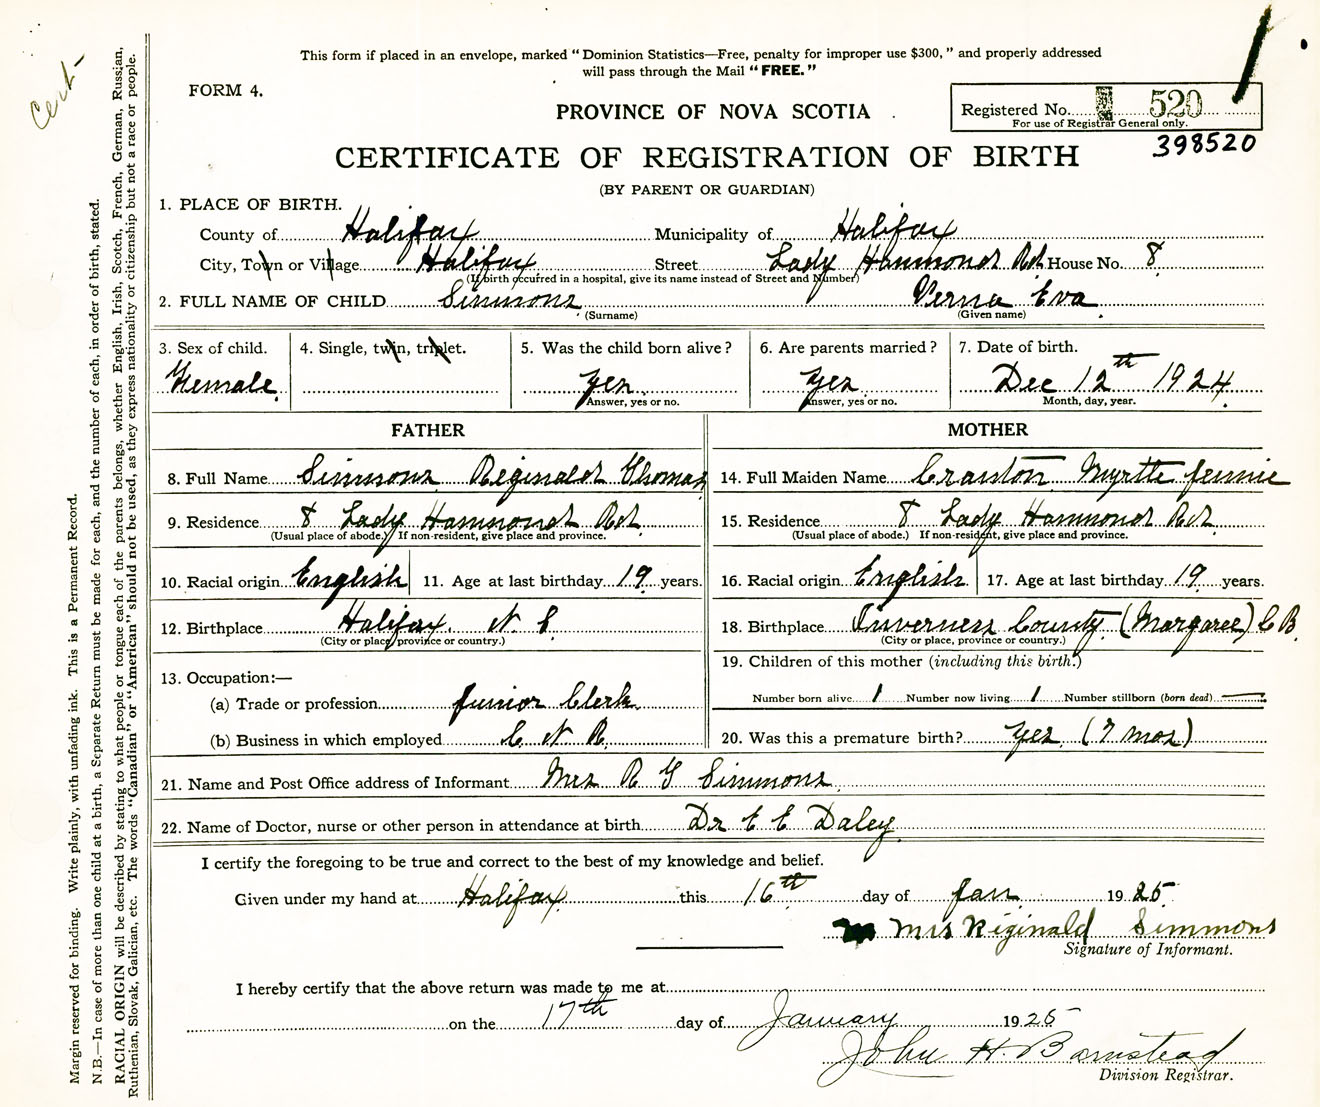 This form if placed in an envelope, marked "Dominion Statistics—Free, penalty for improper use $300," and properly addressed
will pass through the Mail "FREE."
Cert.
FORM 4.
PROVINCE OF NOVA SCOTIA
Registered No. 520
For use of Registrar General only.
398520
CERTIFICATE OF REGISTRATION OF BIRTH
(BY PARENT OR GUARDIAN)
1. PLACE OF BIRTH.
County of Halifax Municipality of Halifax
City, Town or Village Halifax Street Lady Hammond Rd House No. 8
(If birth occurred in a hospital, give its name instead of Street and Number)
2. FULL NAME OF CHILD Simmons Verna Eva
(Surname) (Given name)
3. Sex of child. 4. Single, twin, triplet. 5. Was the child born alive? 6. Are parents married? 7. Date of birth.
Female Yes Yes Dec 12th 1924
Answer, yes or no. Answer, yes or no. Month, day, year.
FATHER MOTHER
8. Full Name Simmons Reginald Thomas 14. Full Maiden Name Cranton Myrtle Jennie
9. Residence 8 Lady Hammond Rd 15. Residence 8 Lady Hammond Rd
(Usual place of abode.) If non-resident, give place and province. (Usual place of abode.) If non-resident, give place and province.
10. Racial origin English 11. Age at last birthday 19 years. 16. Racial origin English 17. Age at last birthday 19 years.
12. Birthplace Halifax N S 18. Birthplace Inverness County (Margaree) C B
(City or place, province or country.) (City or place, province or country.)
19. Children of this mother (including this birth.)
13. Occupation:—
Number born alive 1 Number now living 1 Number stillborn (born dead) —
(a) Trade or profession Junior Clerk
(b) Business in which employed C N R 20. Was this a premature birth? Yes (7 mos)
21. Name and Post Office address of Informant Mrs R T Simmons
22. Name of Doctor, nurse or other person in attendance at birth Dr E E Daley
I certify the foregoing to be true and correct to the best of my knowledge and belief.
Given under my hand at Halifax this 16th day of Jan 1925
Mrs Riginald Simmons
Signature of Informant.
I hereby certify that the above return was made to me at
on the 17th day of January 1925
John H. Barnstead
Division Registrar.
Margin reserved for binding. Write plainly, with unfading ink. This is a Permanent Record.
N.B.—In case of more than one child at a birth, a Separate Return must be made for each, and the number of each, in order of birth, stated.
RACIAL ORIGIN will be described by stating to what people or tongue each of the parents belongs, whether English, Irish, Scotch, French, German, Russian,
Ruthenian, Slovak, Galician, etc. The words "Canadian" or "American" should not be used, as they express nationality or citizenship but not a race or people.